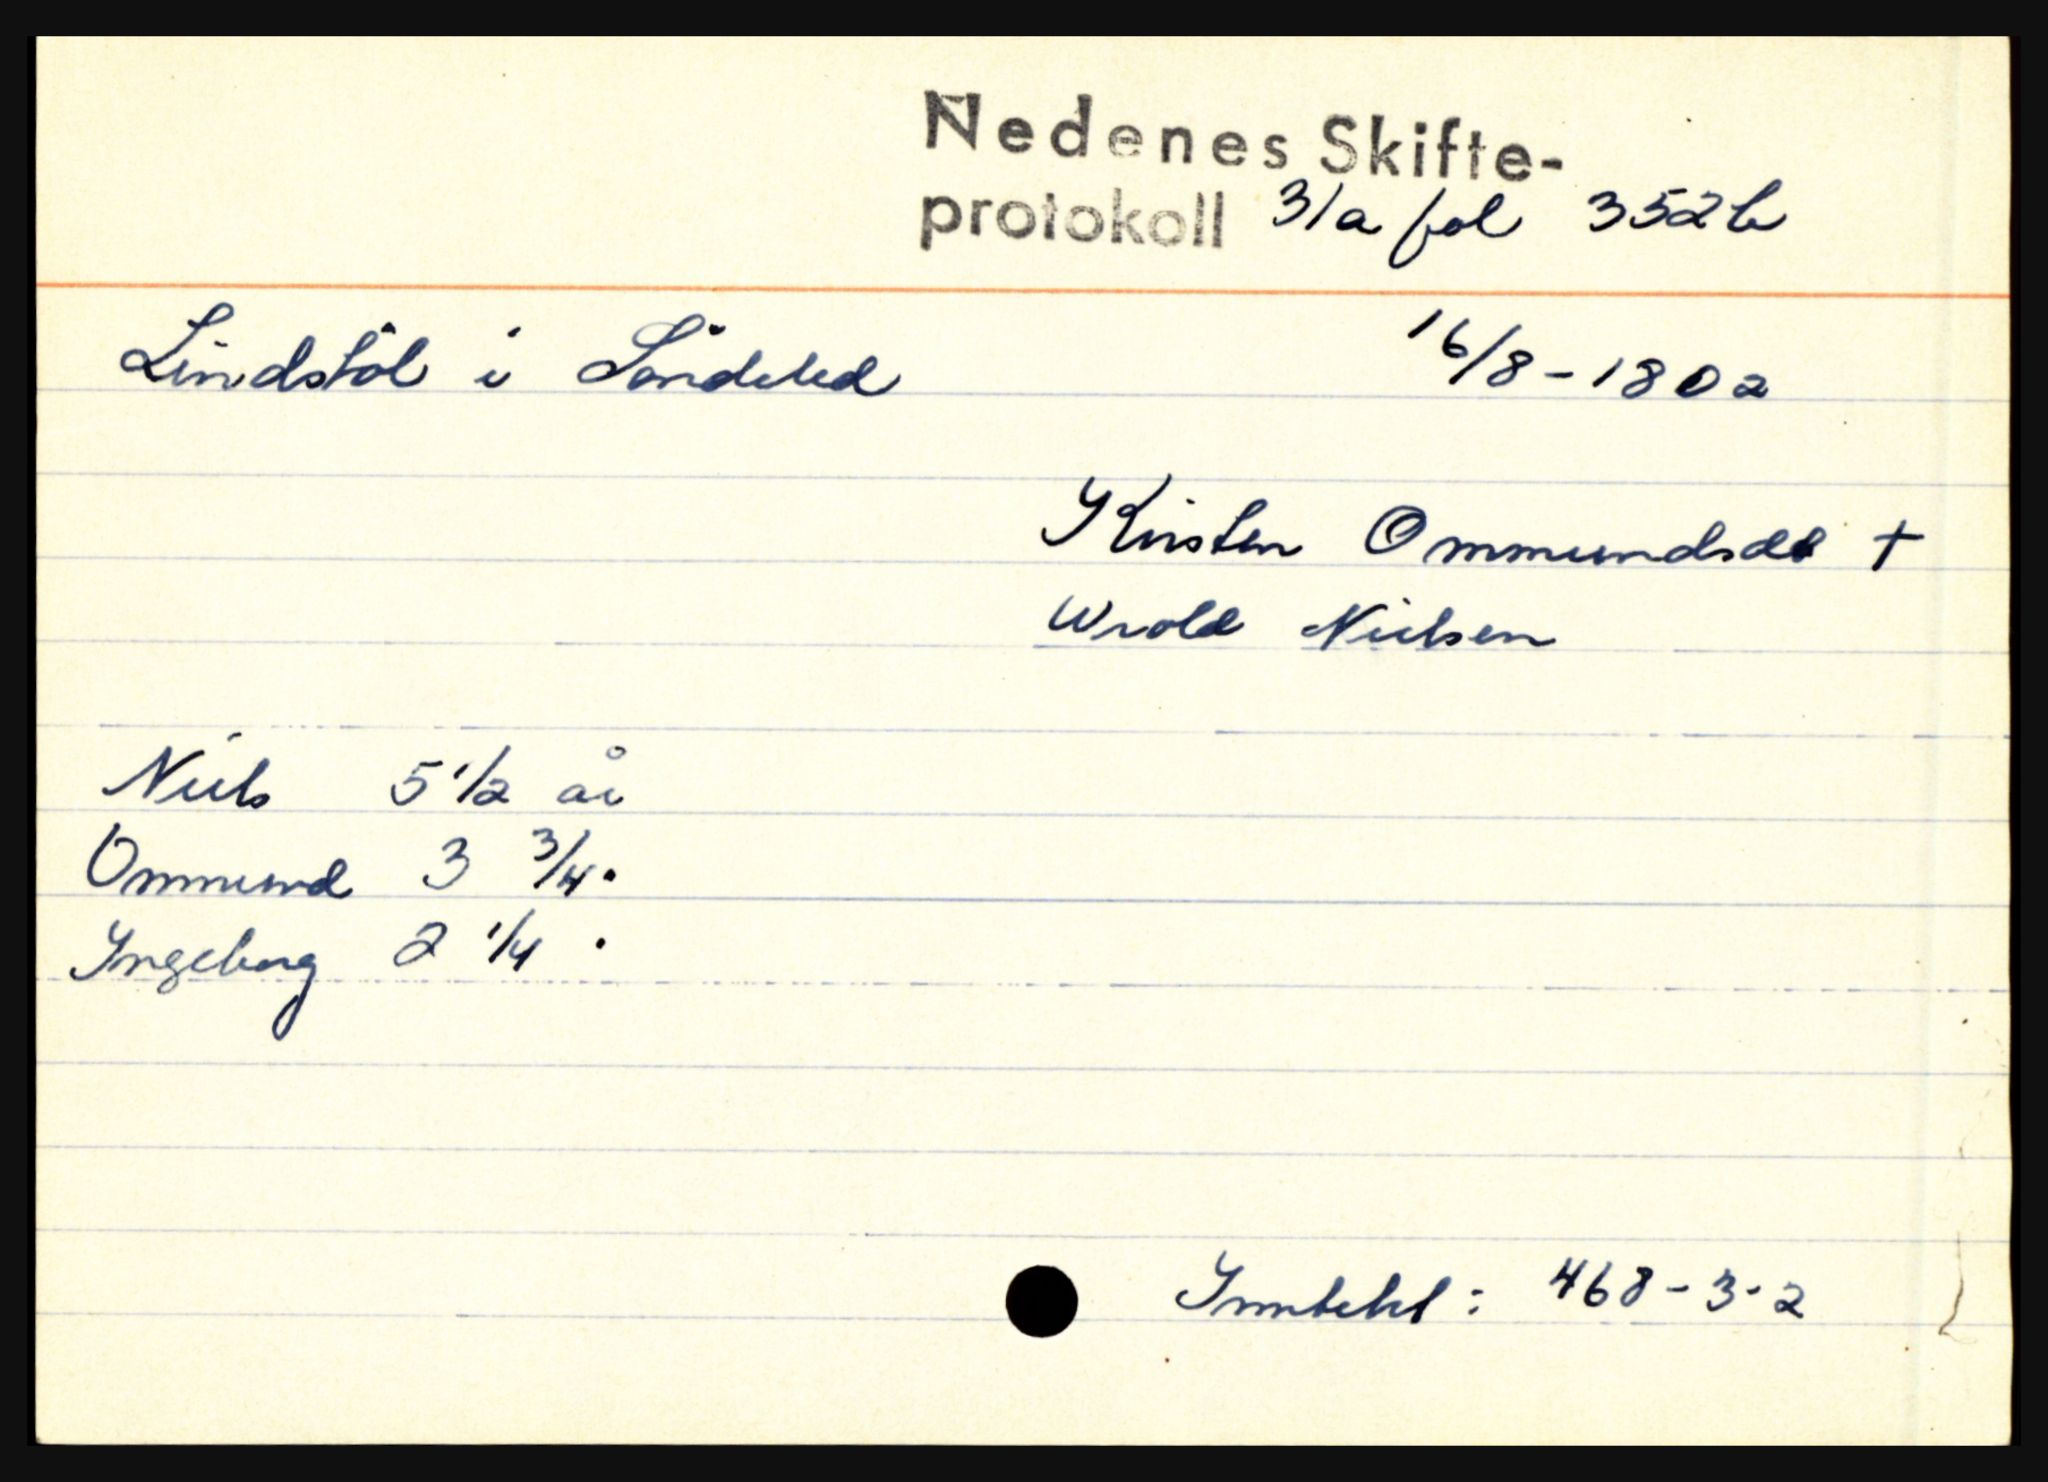 Nedenes Skifte-
protokoll 31a fol 352b
Lindstöl i Söndeled 16/8-1802
Kirsten Ommundsdt +
Wrold Nielsen
Niels 5 1/2 år
Ommund 3 3/4 "
Ingeborg 2 1/4 "
Inntekt: 468-3-2